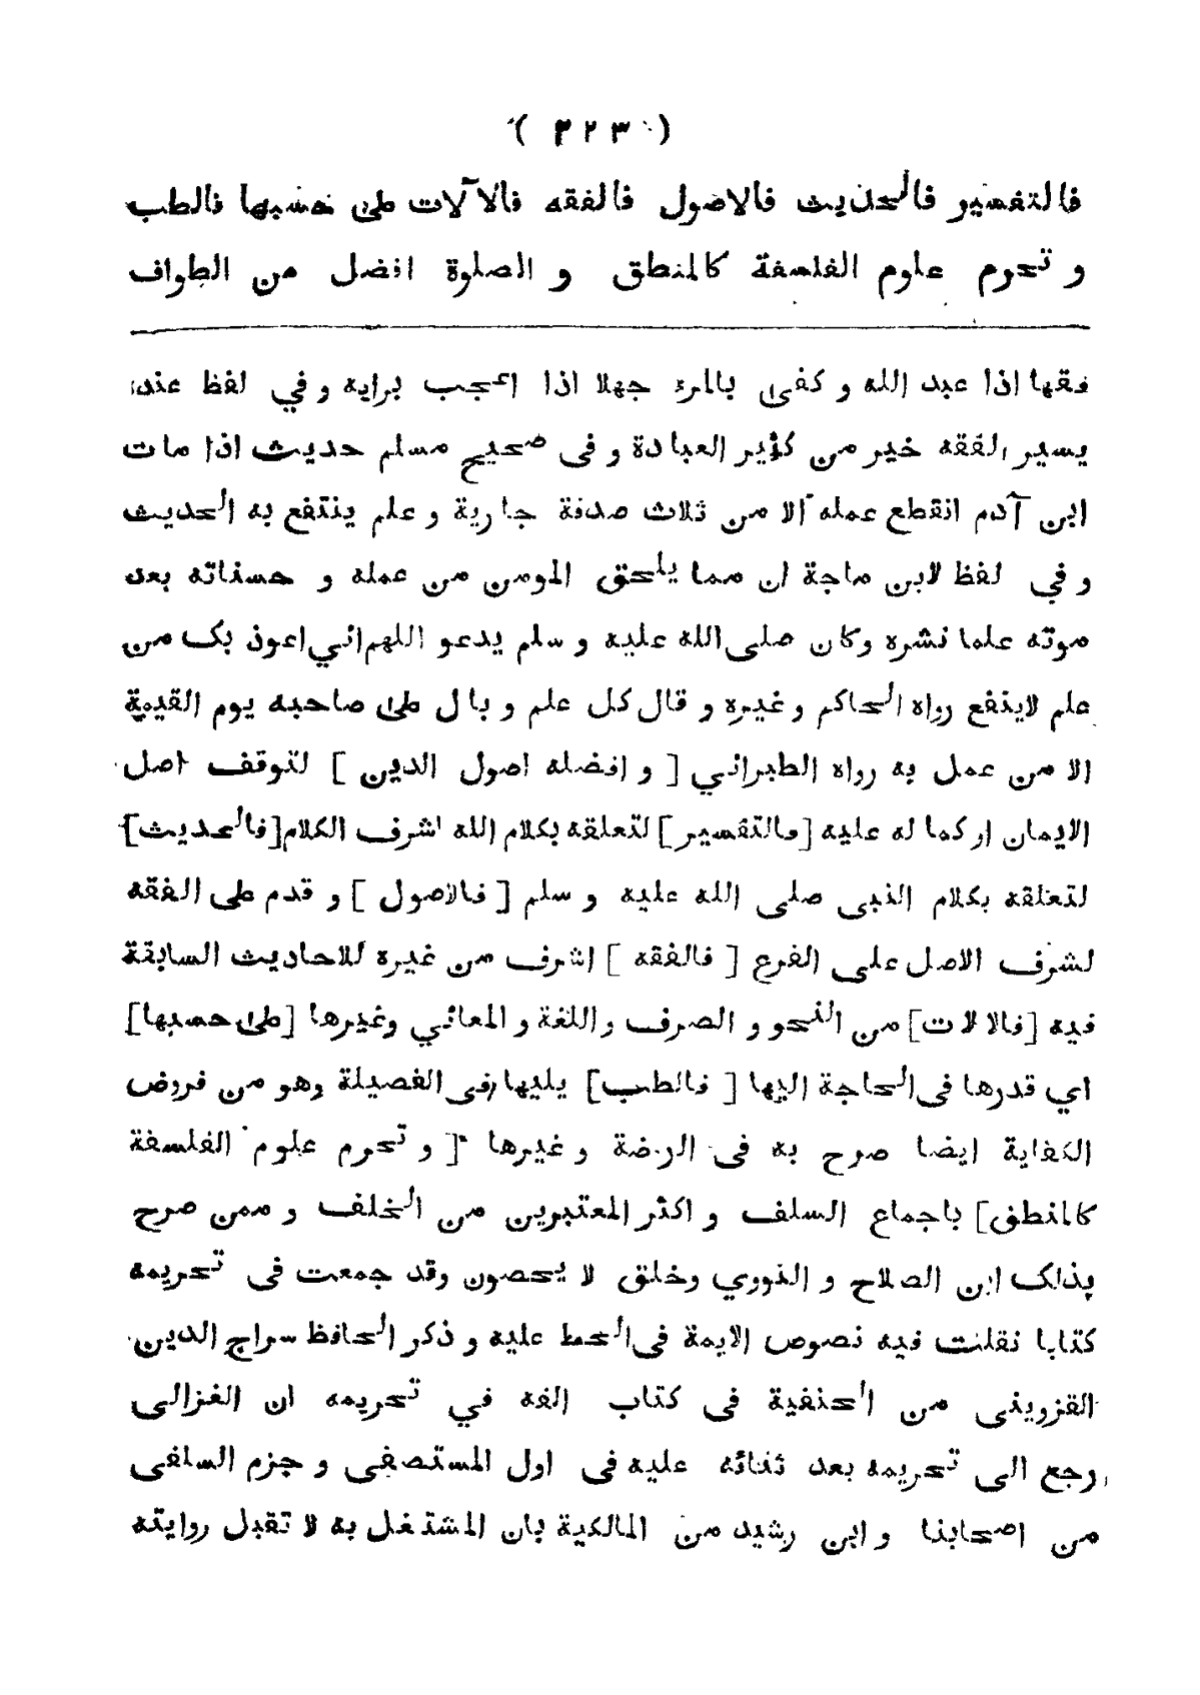 ( ٣٢٣ )
فالتفسير فالحديث فالاصول فالفقه فالآلات على حسبها فالطب
و تحرم علوم الفلسفة كالمنطق و الصلوة افضل من الطواف
فقها اذا عبد الله و كفى بالمرء جهلا اذا اعجب برايه و في لفظ عنده
يسير الفقه خير من كثير العبادة و فى صحيح مسلم حديث اذا مات
ابن آدم انقطع عمله الا من ثلاث صدقة جارية و علم ينتفع به الحديث
و في لفظ لابن ماجة ان مما يلحق المومن من عمله و حسناته بعد
موته علما نشره وكان صلى الله عليه و سلم يدعو اللهم اني اعوذ بك من
علم لاينفع رواه الحاكم و غيره و قال كل علم و بال على صاحبه يوم القيمة
الا من عمل به رواه الطبراني [ و افضله اصول الدين ] لتوقف اصل
الايمان او كماله عليه [فالتفسير] لتعلقه بكلام الله اشرف الكلام [فالحديث]
لتعلقه بكلام النبى صلى الله عليه و سلم [ فالاصول ] و قدم على الفقه
لشرف الاصل على الفرع [ فالفقه ] اشرف من غيره للاحاديث السابقة
فيه [فالالات] من النحو و الصرف و اللغة و المعاني وغيرها [على حسبها]
اي قدرها فى الحاجة اليها [ فالطب] يليها فى الفضيلة وهو من فروض
الكفاية ايضا صرح به فى الروضة و غيرها [ و تحرم علوم الفلسفة
كالمنطق] باجماع السلف و اكثر المعتبرين من الخلف و ممن صرح
بذلك ابن الصلاح و النووي وخلق لا يحصون وقد جمعت فى تحريمه
كتابا نقلت فيه نصوص الايمة فى الحط عليه و ذكر الحافظ سراج الدين
القزوينى من الحنفية فى كتاب الفه في تحريمه ان الغزالى
رجع الى تحريمه بعد ثنائه عليه فى اول المستصفى و جزم السلفى
من اصحابنا و ابن رشيد من المالكية بان المشتغل به لا تقبل روايته